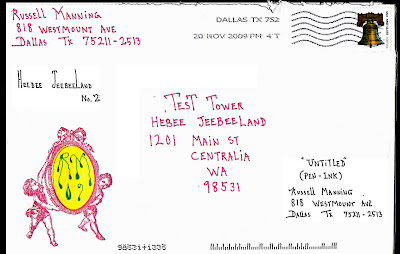 Russell Manning
818 Westmount Ave
Dallas Tx 75211-2513
DALLAS TX 752
20 NOV 2009 PM 4 T
Heebee JeebeeLand
No. 2
Test Tower
Hebee JeebeeLand
1201 Main St
Centralia
WA
98531
"Untitled"
(Pen-Ink)
Russell Manning
818 Westmount Ave
Dallas Tx 75211-2513
98531+1333